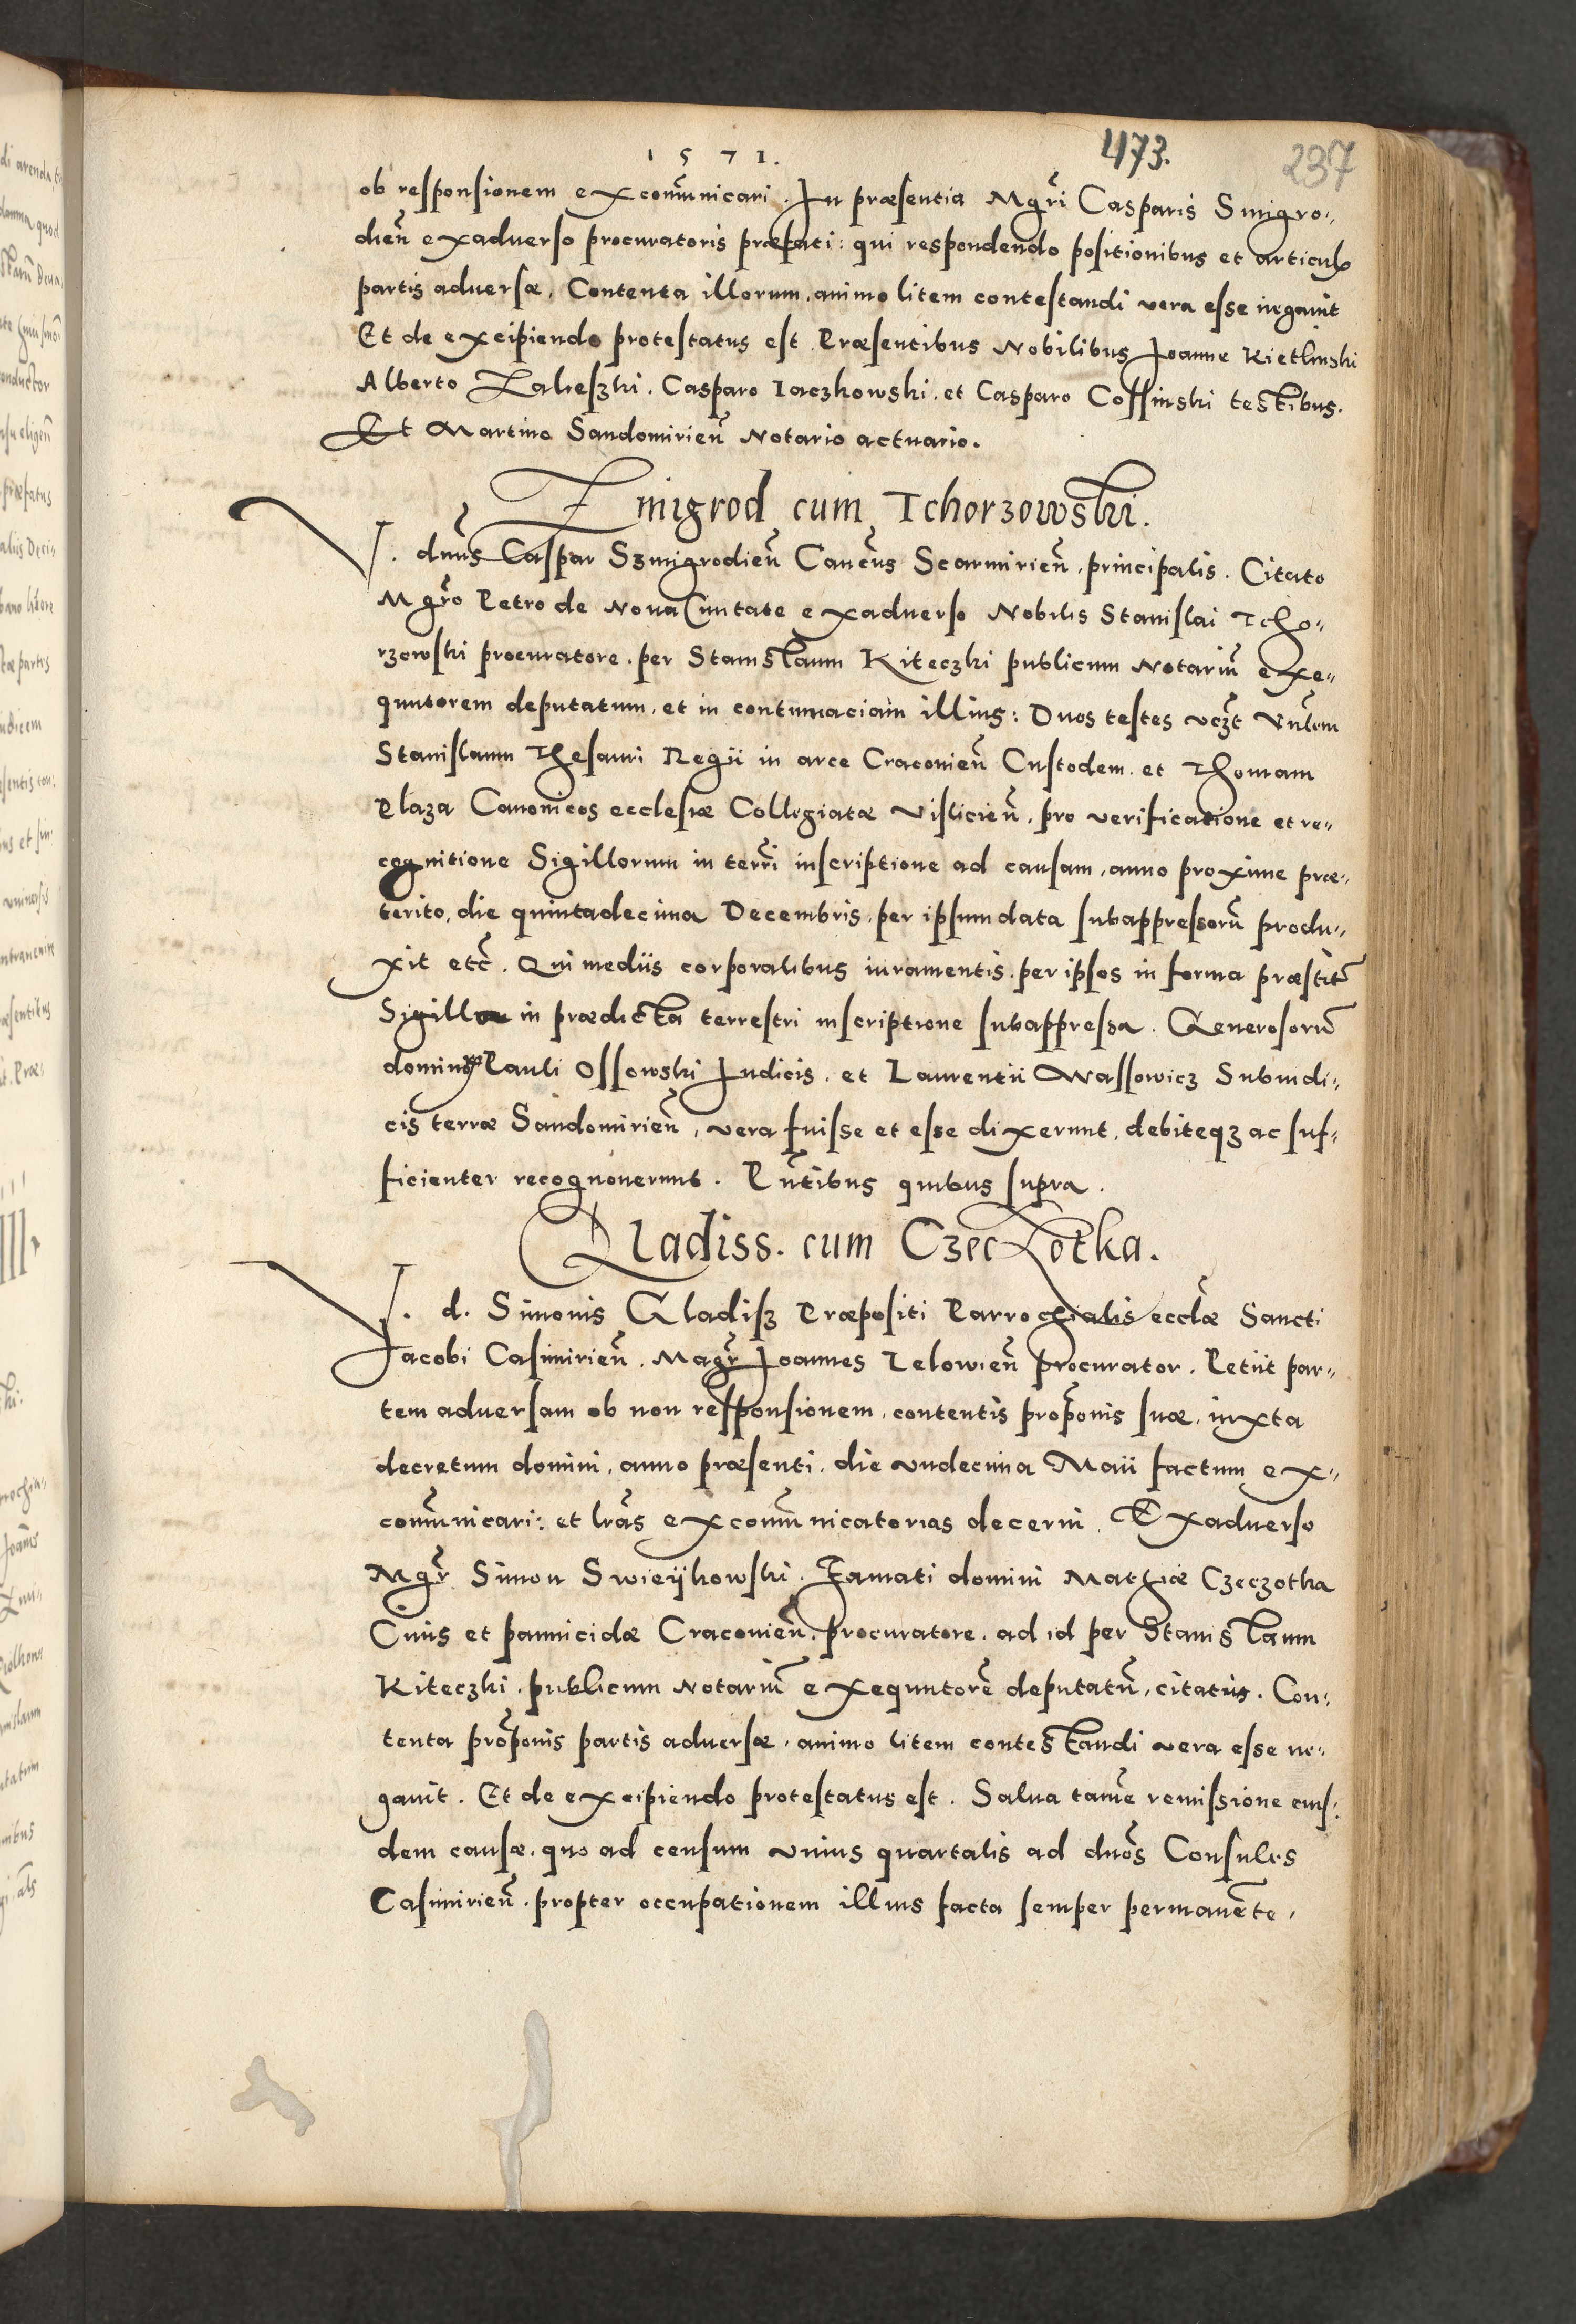 1571.
473.
237
ob responsionem excom̃unicari. In præsentia Mgr̃i Casparis Smigro„
dieñ exaduerso procuratoris præfati: qui respondendo positionibus et articulʒ
partis aduersæ, Contenta illorum, animo litem contestandi vera esse negauit
Et de excipiendo protestatus est Præsentibus Nobilibus Joanne Kietlinski
Alberto Zaleszki. Casparo Iaczkowski. et Casparo Cossinski testibus.
Et Martino Sandomirieñ Notario actuario.
Zmigrod cum Tchorzowski.
J. dñus Caspar Szmigrodieñ Cancũs Scarmirieñ, principalis. Citato
Mgr̃o Petro de Noua Ciuitate exaduerso Nobilis Stanislai Tcho„
rzowski procuratore. per Stanislaum Kiteczki publicum Notariũ exe„
quutorem deputatum, et in contumaciam illius: Duos testes vczt Vñlem
Stanislaum Thesauri Regii in arce Craconieñ Custodem. et Thomam
Plaza Canonicos ecclesiæ Collegiatæ Visliciẽn, pro verificatione et re„
cognitione Sigillorum in terr̃i inscriptione ad causam, anno proxime præ„
terito, die quintadecima Decembris, per ipsum data subappressorũ produ„
xit etc̃. Qui mediis corporalibus iuramentis. per ipsos in forma præstit̃
Sigilla in prædicta terrestri inscriptione subappressa. Generosorũ
dominorum Pauli Ossowski Judicis. et Laurentii Wassowicz Subiudi„
cis terræ Sandomirieñ, vera fuisse et esse dixerunt, debiteqʒ ac suf„
ficienter recognouerunt. Pñtibus quibus supra.
Gladiss. cum Czeczotka.
J. d. Simonis Gladisz Præpositi Parrochialis ecclæ Sancti
Jacobi Casimirieñ. Magr̃ Joannes Lelowieñ procurator. Petiit par„
tem aduersam ob non responsionem, contentis prop̃onis suæ, iuxta
decretum domini, anno præsenti, die vndecima Maii factum ex„
com̃unicari: et lr̃as excom̃unicatorias decerni. Exaduerso
Mgr̃ Simon Swieijkowski. Famati domini Mathiæ Czeczotka
Ciuis et pannicidæ Craconieñ, procuratore. ad id per Stanislaum
Kiteczki. publicum Notariũ exequutorẽ deputatũ, citatus. Con„
tenta prop̃onis partis aduersæ, animo litem contestandi vera esse ne„
gauit. Et de excipiendo protestatus est. Salua tamẽ remissione eius„
dem causæ. quo ad censum vnius quartalis ad dños Consules
Casimirieñ. propter occupationem illius facta semper permanẽte.